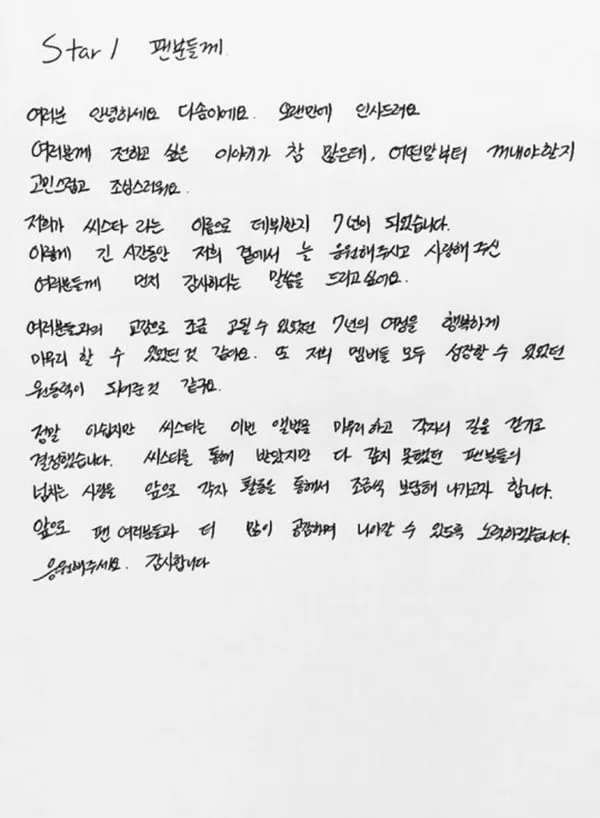 Star1 팬분들께.
여러분 안녕하세요 다솜이에요. 오랜만에 인사드려요
여러분께 전하고 싶은 이야기가 참 많은데, 어떤말부터 꺼내야할지
고민스럽고 조심스러워요.
저희가 씨스타 라는 이름으로 데뷔한지 7년이 되었습니다.
이렇게 긴 시간동안 저희 곁에서 늘 응원해주시고 사랑해 주신
여러분들께 먼저 감사하다는 말씀을 드리고싶어요.
여러분들과의 교감으로 조금 고될 수 있었던 7년의 여정을 행복하게
마무리 할 수 있었던 것 같아요. 또 저희 멤버들 모두 성장할 수 있었던
원동력이 되어준것 같구요.
정말 아쉽지만 씨스타는 이번 앨범을 마무리하고 각자의 길을 걷기로
결정했습니다. 씨스타를 통해 받았지만 다 갚지 못했던 팬분들의
넘치는 사랑을 앞으로 각자 활동을 통해서 조금씩 보답해 나가고자 합니다.
앞으로 팬 여러분들과 더 많이 공감하며 나아갈 수 있도록 노력하겠습니다.
응원해주세요. 감사합니다